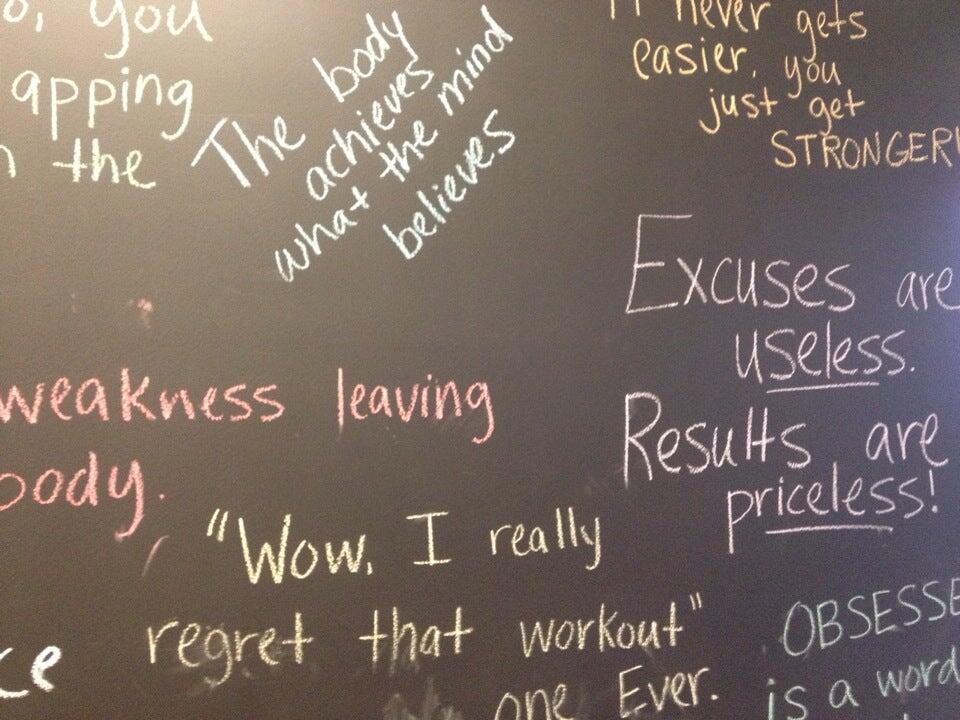 you
apping
the
The body
achieves
what the mind
believes
never gets
easier, you
just get
STRONGER!
Excuses are
useless.
Results are
priceless!
weakness leaving
body.
"Wow, I really
regret that workout"
one Ever.
OBSESSE
is a word
ce